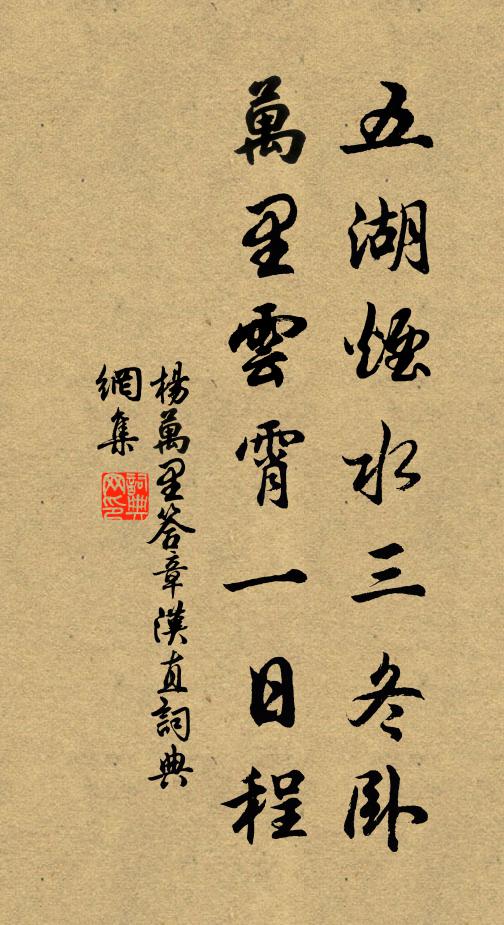 五湖煙水三冬卧
萬里雲霄一日程
楊萬里答章漢直詞典
網集
詞典
网印